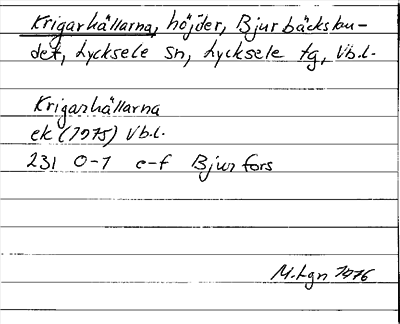 Krigarhällarna, höjder, Bjurbäcksbu-
det, Lycksele sn, Lycksele tg, Vb.l.
Krigarhällarna
ek (1975) Vb.l.
231 0-1 e-f Bjurfors
M.Lgn 1976